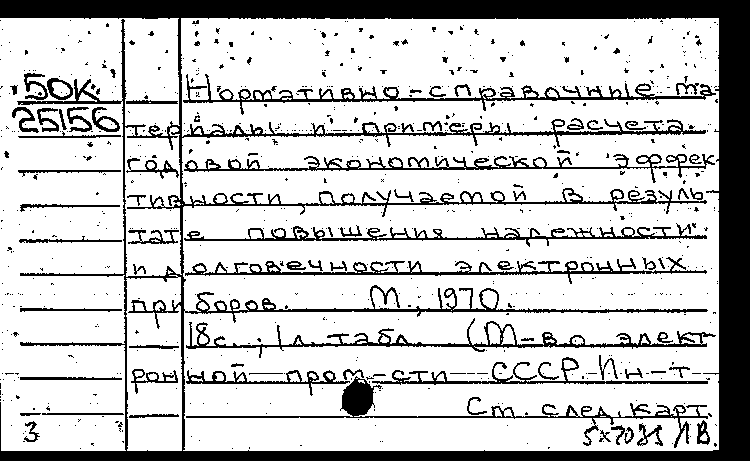 50К
25156
Нормативно-справочные ма-
териалы и примеры расчета
годовой экономической эффек-
тивности, получаемой в резуль-
тате повышения надежности
и долговечности электронных
приборов. М., 1970.
18с.; 1 л. табл. (М-во элект-
ронной пром-сти СССР. Ин-т
См. след. карт.
3